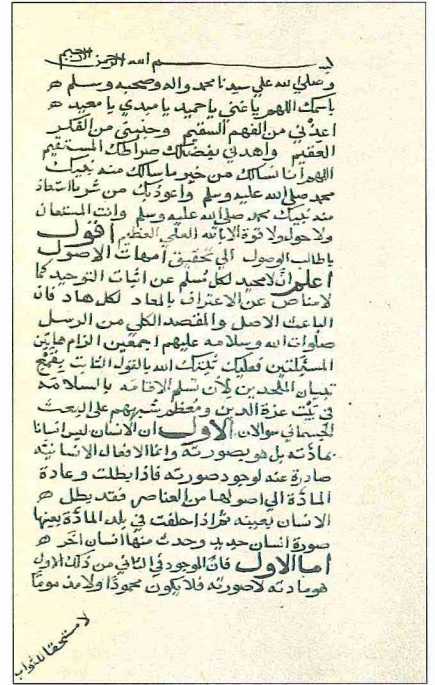 بسم الله الرحمن الرحيم
وصلى الله علي سيدنا محمد واله وصحبه وسلم
باسمك اللهم يا غني يا حميد يا مبدي يا معيد
اعذني من الفهم السقيم وجنبني من الفكر
العقيم واهدني بفضلك صراطك المستقيم
اللهم انا نسالك من خير ما سالك منه نبيك
محمد صلى الله عليه وسلم واعوذ بك من شر ما استعاذ
منه نبيك محمد صلى الله عليه وسلم وانت المستعان
ولا حول ولا قوة الا بالله العلي العظيم اقول
يا طالب الوصول الي تحقيق امهات الاصول
اعلم ان لا محيد لكل مسلم عن اثبات التوحيد كما
لا مناص عن الاعتراف بالمعاد لكل هاد فان
الباعث الاصل والمقصد الكلي من الرسل
صلوات الله وسلامه عليهم اجمعين الزام هاتين
المسئلتين فعليك ثبتك الله بالقول الثابت
تبيان الملحدين لان تسلم الاقامه بالسلامة
في بيت عزة الدين ومعظم شبههم على البعث
الجسماني سوالان الاول ان الانسان ليس انسانا
بمادته بل هو بصورته وانما الافعال الانسانية
صادرة عنه لوجود صورته فاذا بطلت وعادة
المادة الي اصولها من العناصر فقد بطل
الانسان بعينه ثم اذا خلقت في بلد المادة بعينها
صورة انسان جديد وحدث منها انسان اخر
اما الاول فان الموجود في الثاني من ذلك الاول
هو مادته لا صورته فلا يكون محمودا ولا مذموما
لا مستحقا للثواب